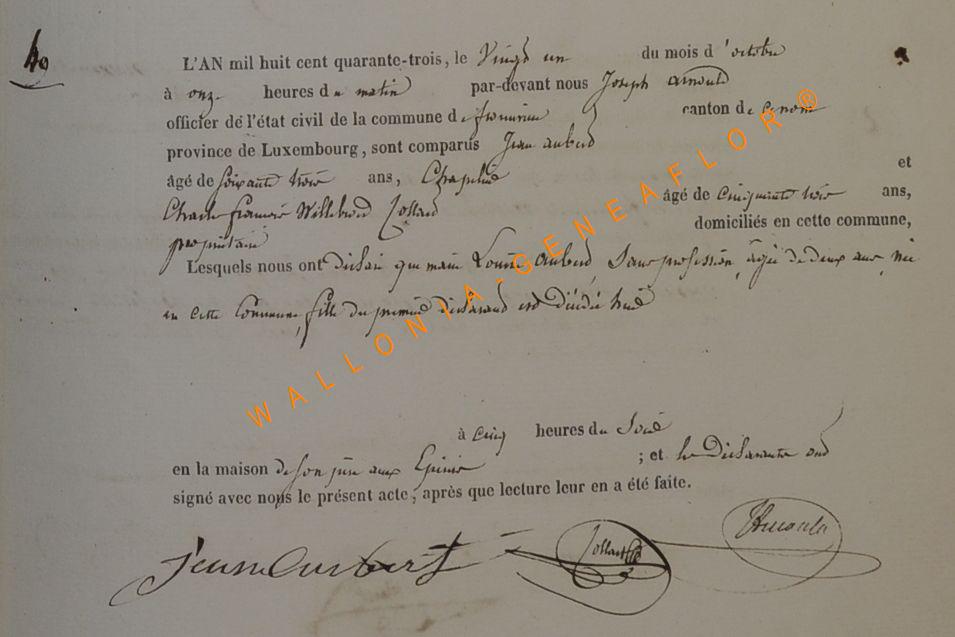 40
L'AN mil huit cent quarante-trois, le Vingt un du mois d'octobre
à onze heures du matin par-devant nous Joseph Arnould
officier de l'état civil de la commune de canton de
province de Luxembourg, sont comparus Jean aubert
âgé de soixante trois ans, et
Charles françois Willebrord Collard âgé de cinquante trois ans,
propriétaire domiciliés en cette commune,
Lesquels nous ont déclaré que marie Louise aubert, Sans profession, âgée de deux ans, née
en cette Commune, fille du premier déclarant est décédée hier
à cinq heures du Soir
en la maison de son père aux ; et les Déclarants ont
signé avec nous le présent acte, après que lecture leur en a été faite.
Jean Aubert Collard JArnould
WALLONIA-GENEAFLOR®